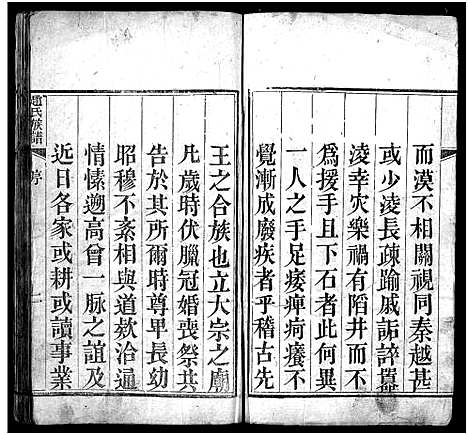 而漠不相關視同秦越甚
或少淩長疎踰戚詬誶囂
淩幸灾樂禍有陷井而不
爲援手且下石者何異
一人之手足痿痺疴癢不
覺漸成廢疾者乎稽古先
王之合族也立大宗之廟
凡歲時伏臘冠婚喪祭共
告於其所爾時尊卑長幼
昭穆不紊相與道欵洽通
情愫遡高曾一脉之誼及
近日各家或耕或讀事業
趙氏族譜
序
二